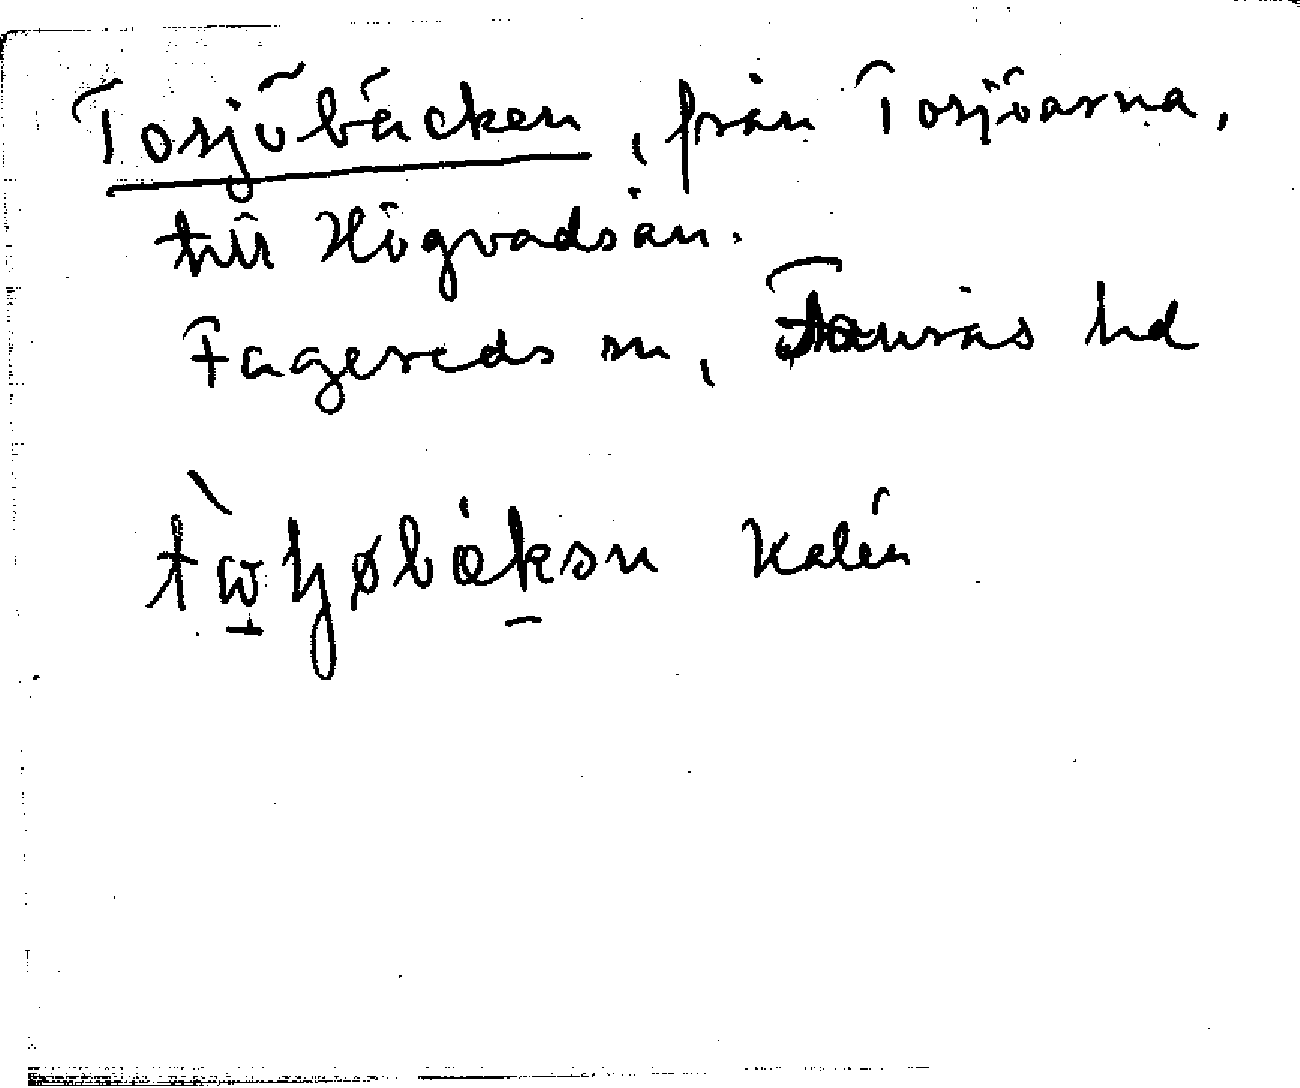 Torsjöbäcken, från Torsjöarna,
till Högvadsån.
Fagereds sn, Faurås hd
Kalén